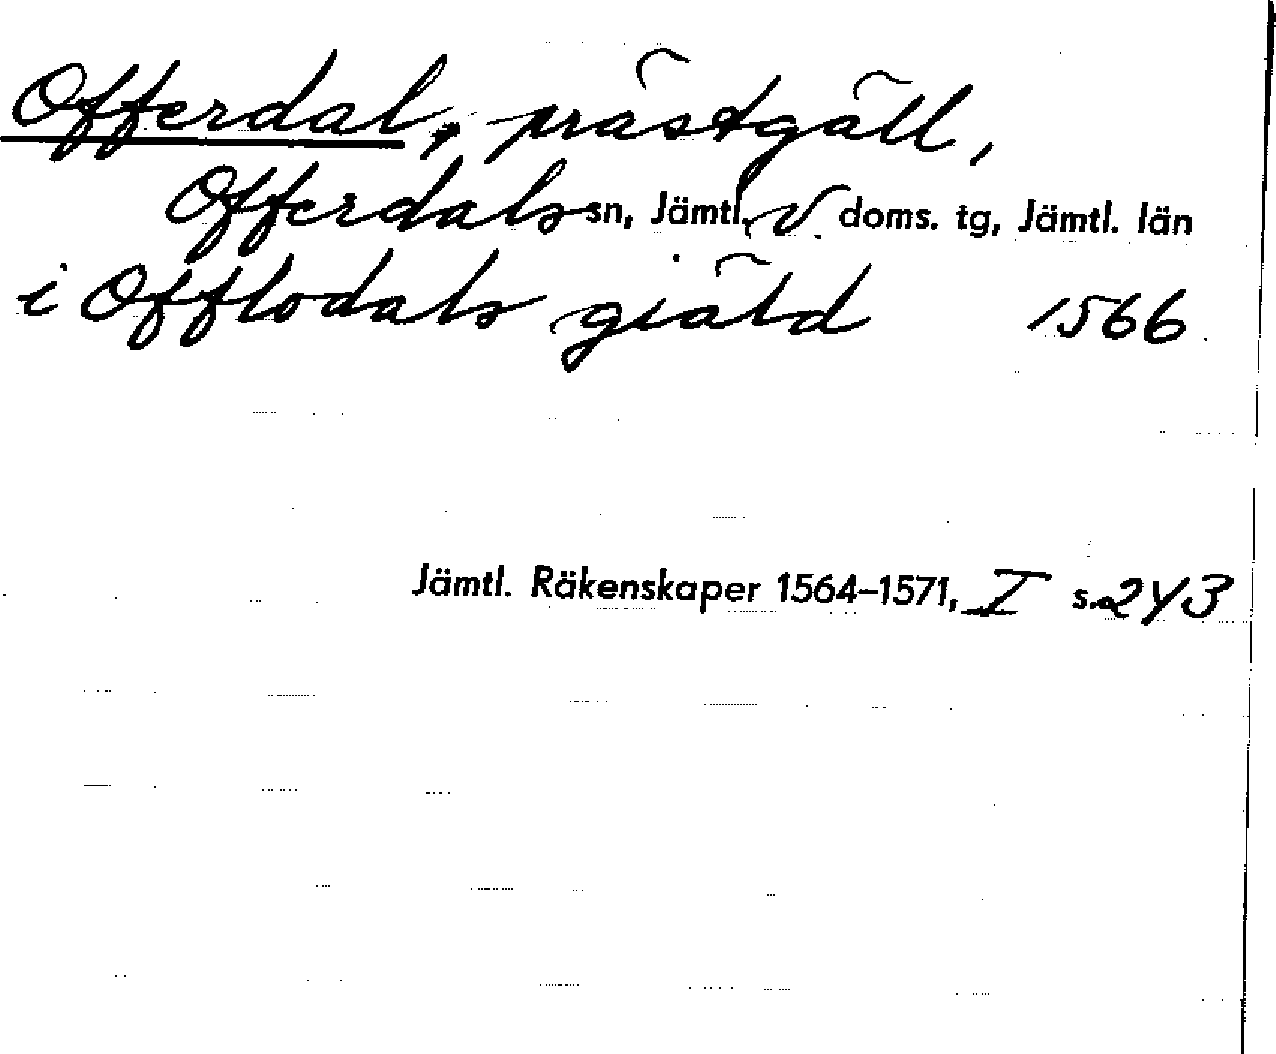 Offerdal, prästgäll,
Offerdals sn, Jämtl, V. doms. tg, Jämtl. län
i Offlodals giäld 1566
Jämtl. Räkenskaper 1564-1571, I s. 243